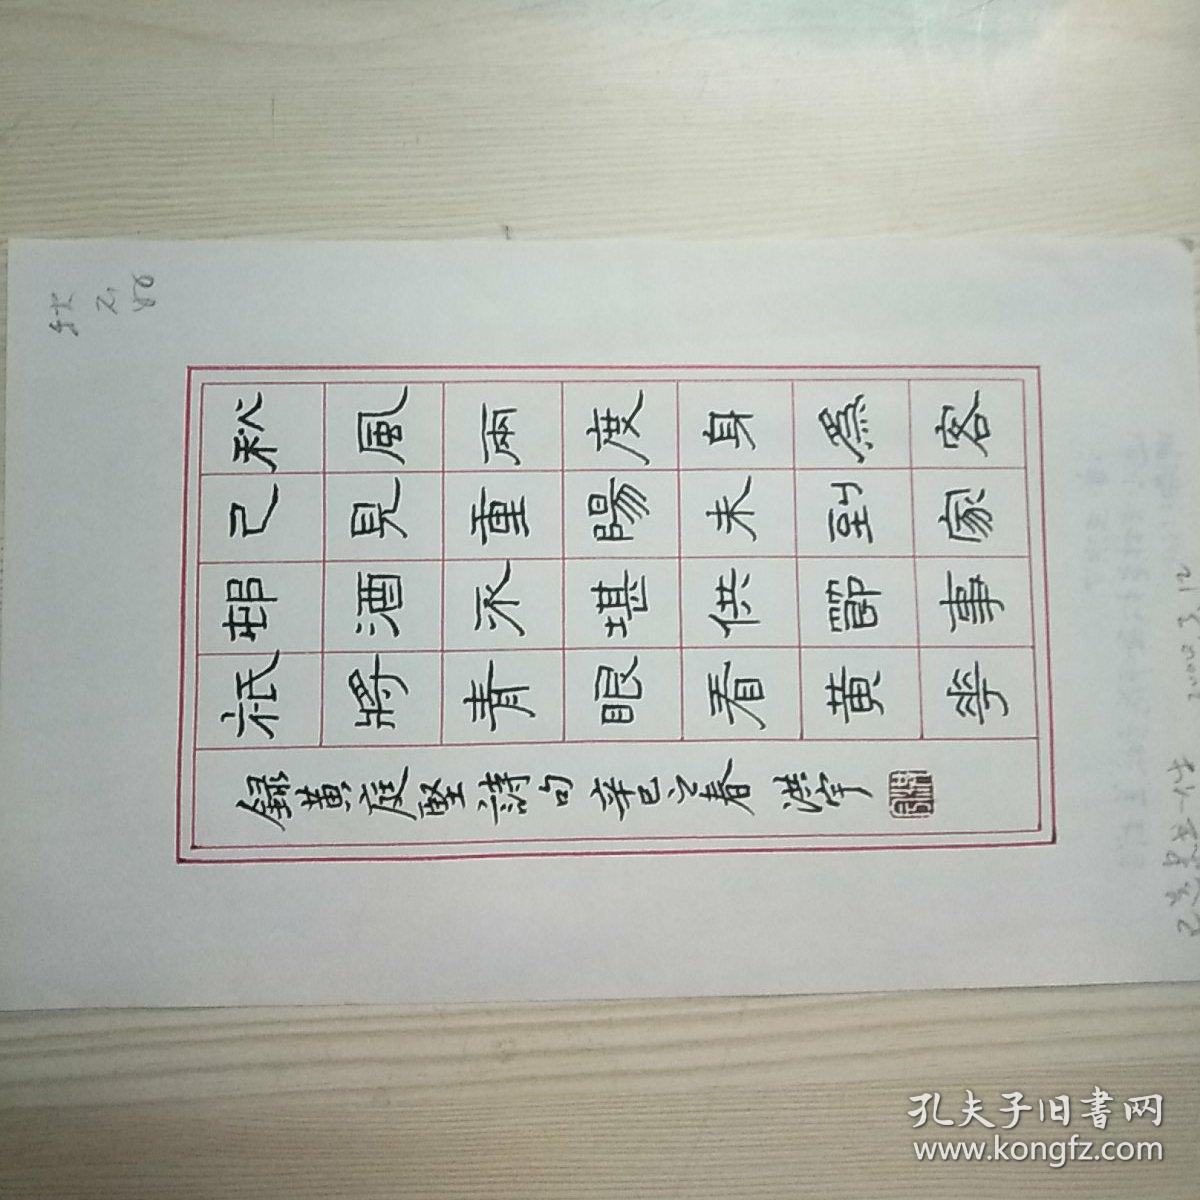 秌風兩度身爲客
已見重陽未到家
邨酒不堪供節事
祇將青眼看黄華
錄黄庭堅詩句 辛巳之春 洪宇
孔夫子旧書网
www.kongfz.com